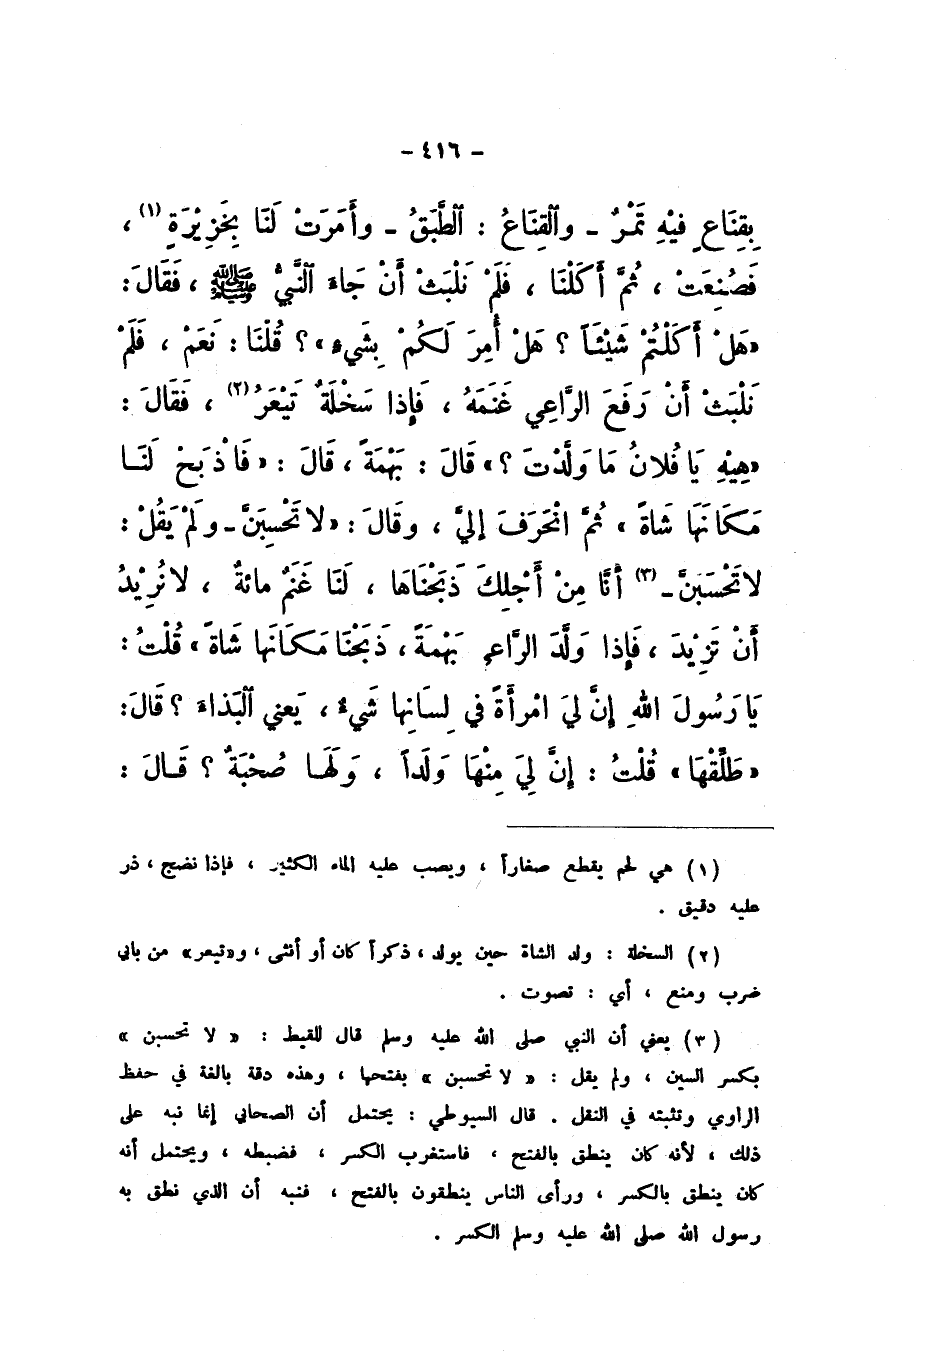 - ٤١٦ -
بِقِنَاعٍ فِيْهِ تَمْرٌ - والْقِنَاعُ : الطَّبَقُ - وأَمَرَتْ لَنَا بِخَزِيْرَةٍ (١) ،
فَصُنِعَتْ ، ثُمَّ أَكَلْنَا ، فَلَمْ نَلْبَثْ أَنْ جَاءَ النَّبيُّ ﷺ ، فَقَالَ :
«هَلْ أَكَلْتُمْ شَيْئَاً ؟ هَلْ أُمِرَ لَكُمْ بِشَيءٍ» ؟ قُلْنَا : نَعَمْ ، فَلَمْ
نَلْبَثْ أَنْ رَفَعَ الرَّاعِي غَنَمَهُ ، فَإِذا سَخْلَةٌ تَيْعَرُ (٢) ، فَقَالَ :
«هِيْهِ يَا فُلانُ مَا وَلَّدْتَ ؟» قَالَ : بَهْمَةً ، قَالَ : «فَاذْبَحْ لَنَا
مَكَانَهَا شَاةً» ثُمَّ انْحَرَفَ إِليَّ ، وقَالَ : «لا تَحْسِبَنَّ - ولَمْ يَقُلْ :
لا تَحْسَبَنَّ - (٣) أَنَّا مِنْ أَجْلِكَ ذَبَحْنَاهَا ، لَنَا غَنَمٌ مائةٌ ، لا نُرِيْدُ
أَنْ تَزِيْدَ ، فَإِذا وَلَّدَ الرَّاعي بَهْمَةً ، ذَبَحْنَا مَكَانَها شَاةً» قُلْتُ :
يَا رَسُولَ اللهِ إِنَّ ليَ امْرأَةً في لِسَانِها شَيءٌ ، يَعني الْبَذاءَ ؟ قَالَ :
«طَلِّقْهَا» قُلْتُ : إِنَّ لِيَ مِنْهَا وَلَداً ، وَلَهَا صُحْبَةٌ ؟ قَالَ :
(١) هي لحم يقطع صغاراً ، ويصب عليه الماء الكثير ، فإذا نضج ، ذر
عليه دقيق .
(٢) السخلة : ولد الشاة حين يولد ، ذكراً كان أو أنثى ، و«تيعر» من بابي
ضرب ومنع ، أي : تصوت .
(٣) يعني أن النبي صلى الله عليه وسلم قال للقيط : « لا تحسبن »
بكسر السين ، ولم يقل : « لا تحسبن » بفتحها ، وهذه دقة بالغة في حفظ
الراوي وتثبته في النقل . قال السيوطي : يحتمل أن الصحابي إنما نبه على
ذلك ، لأنه كان ينطق بالفتح ، فاستغرب الكسر ، فضبطه ، ويحتمل أنه
كان ينطق بالكسر ، ورأى الناس ينطقون بالفتح ، فنبه أن الذي نطق به
رسول الله صلى الله عليه وسلم الكسر .